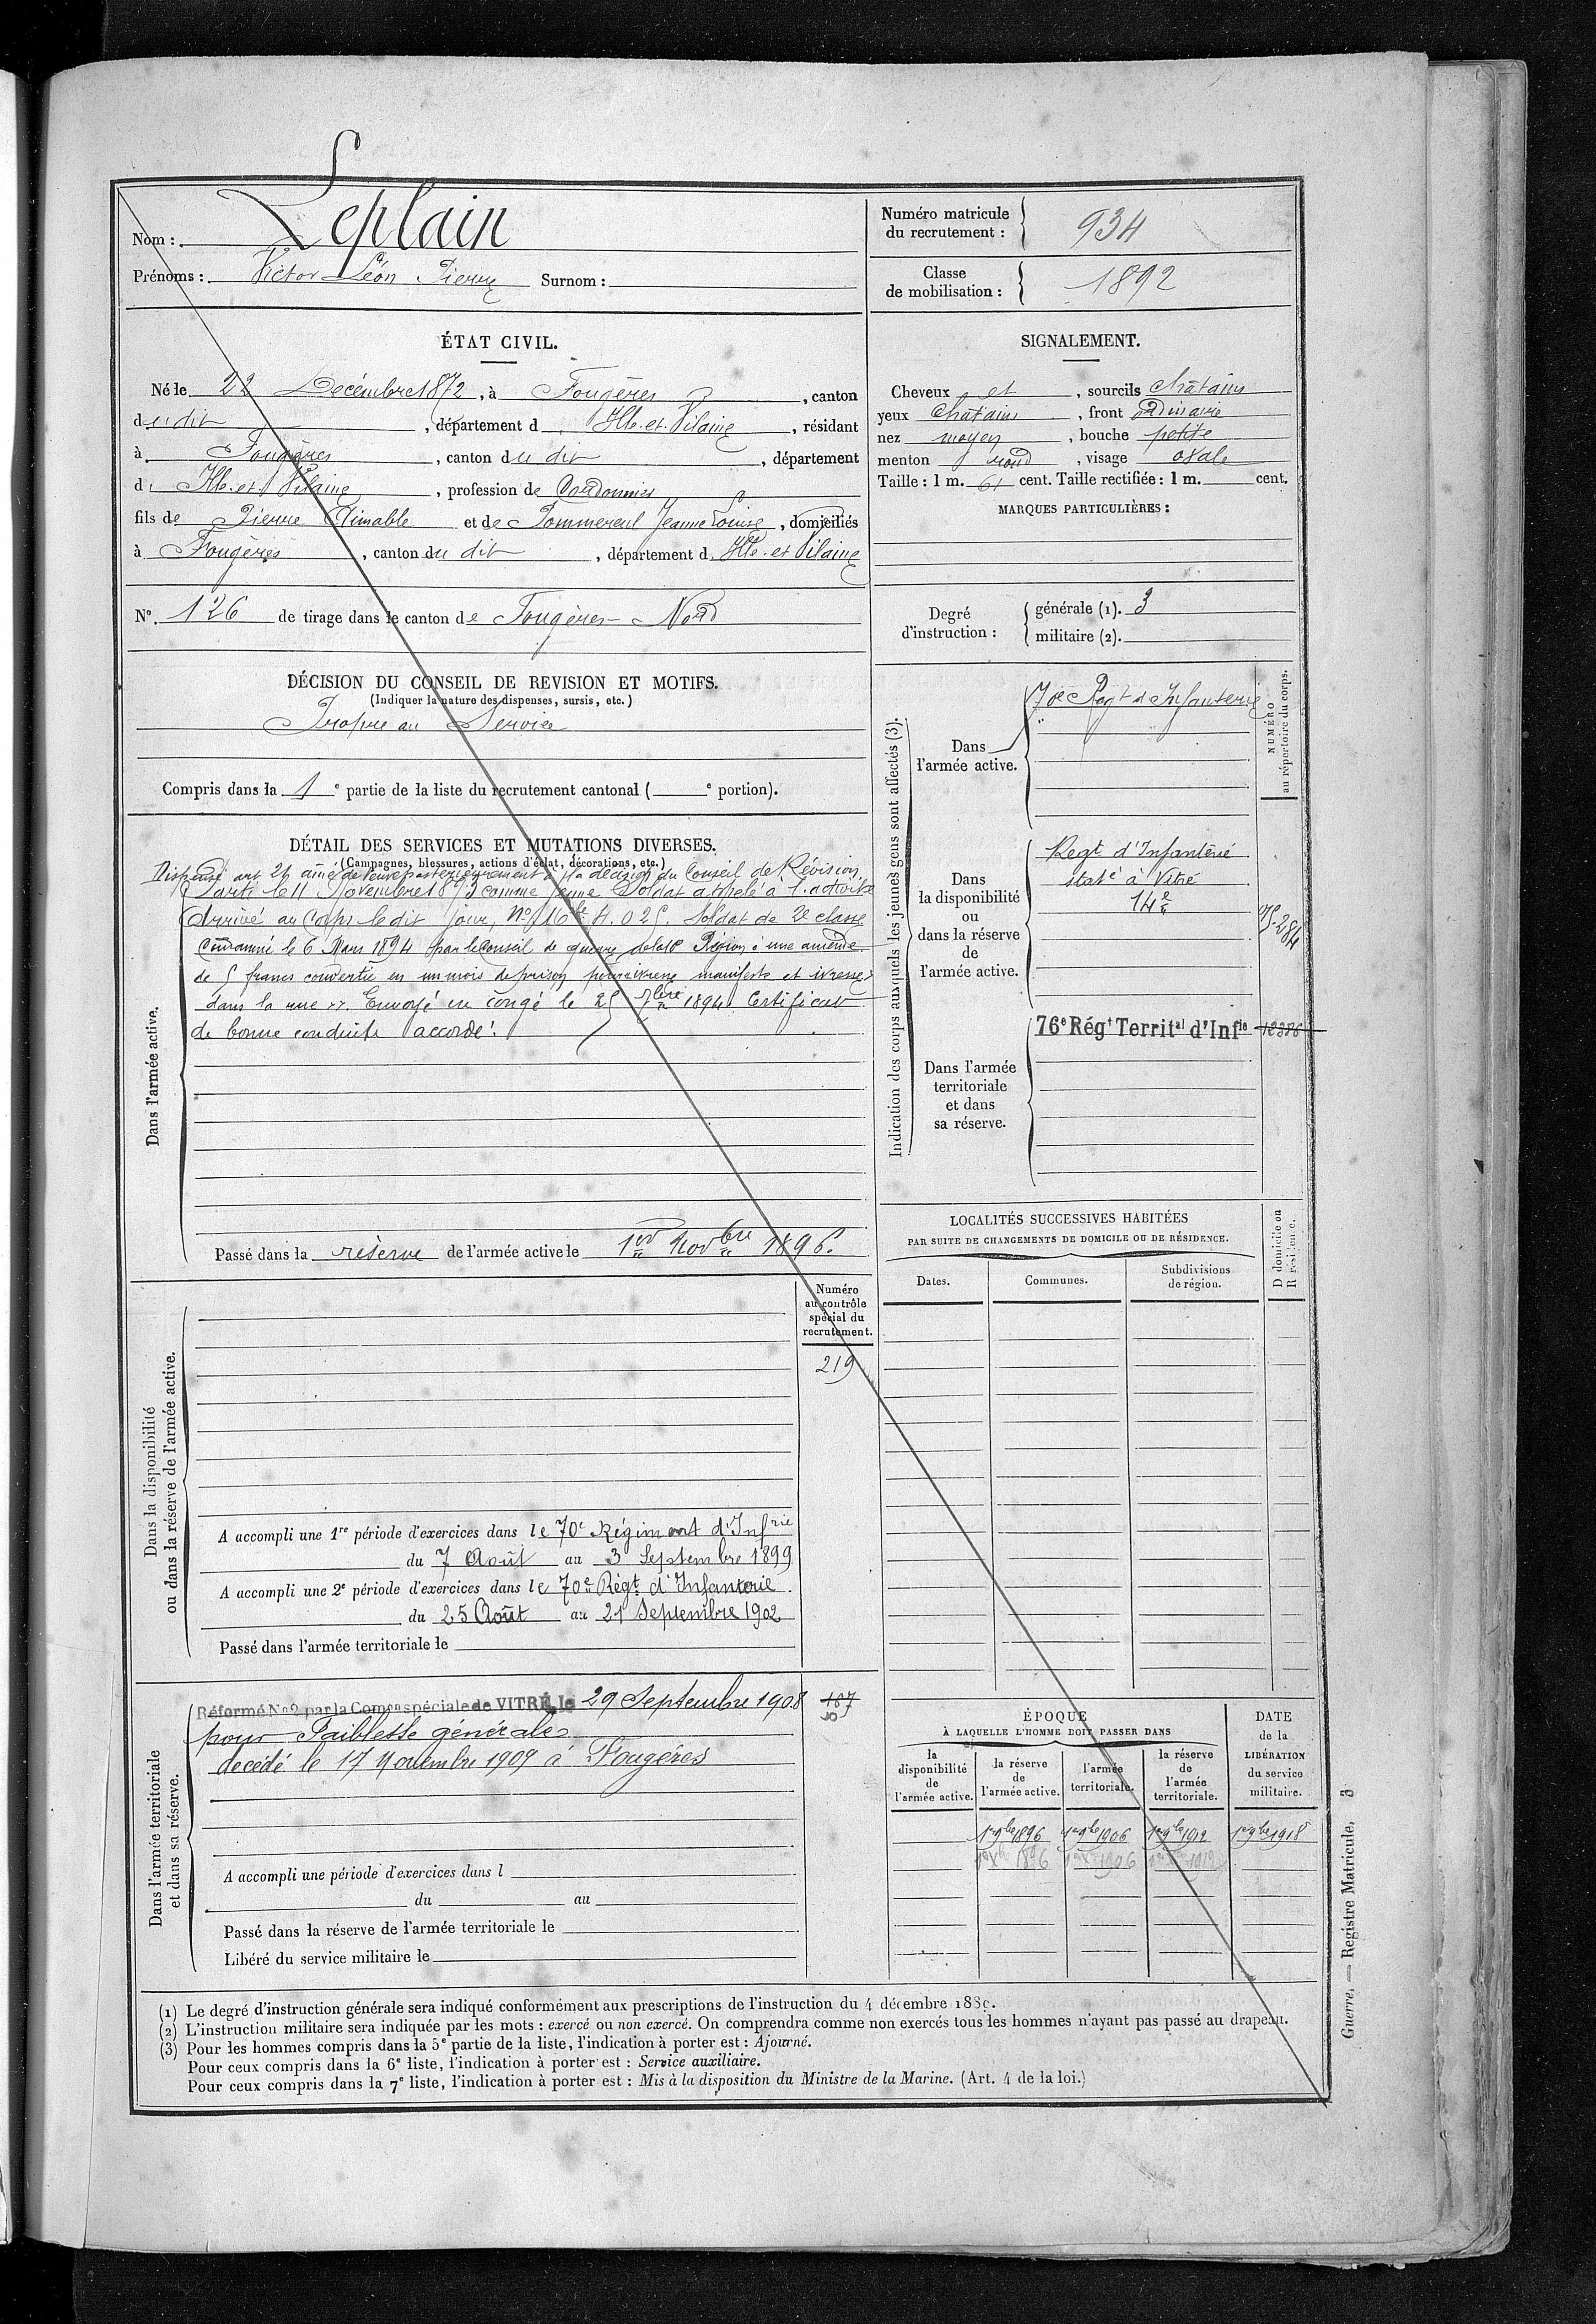 Nom : Leplain
Prénoms : Victor Léon Pierre Surnom :
Numéro matricule du recrutement : 934
Classe de mobilisation : 1892
ÉTAT CIVIL.
Né le 22 Décembre 1872, à Fougères, canton
du dit, département d Ille-et-Vilaine, résidant
à Fougères, canton du dit, département
d Ille-et-Vilaine, profession de Cordonnier
fils de Pierre Aimable et de Pommereul Jeanne Louise, domiciliés
à Fougères, canton du dit, département d Ille-et-Vilaine
N° 126 de tirage dans le canton de Fougères-Nord
SIGNALEMENT.
Cheveux et, sourcils châtains
yeux châtains, front ordinaire
nez moyen, bouche petite
menton rond, visage ovale
Taille : 1 m. 61 cent. Taille rectifiée : 1 m. cent.
MARQUES PARTICULIÈRES :
Degré d'instruction :
générale (1). 3
militaire (2).
DÉCISION DU CONSEIL DE REVISION ET MOTIFS.
(Indiquer la nature des dispenses, sursis, etc.)
Propre au Service
Compris dans la 1e partie de la liste du recrutement cantonal ( e portion).
DÉTAIL DES SERVICES ET MUTATIONS DIVERSES.
(Campagnes, blessures, actions d'éclat, décorations, etc.)
Dispensé art 21 aîné de veuve postérieurement à la décision du Conseil de Révision
Parti le 11 Novembre 1893 comme jeune Soldat appelé à l'activité
Arrivé au Corps le dit jour, Soldat de 2e classe
Condamné le 6 Mars 1894 par le Conseil de guerre de la 10e Région à une amende
de 5 francs convertie en un mois de prison pour ivresse manifeste et ivresse
dans la rue. Envoyé en congé le 25 7bre 1894. Certificat
de bonne conduite accordé.
Dans l'armée active.
Passé dans la réserve de l'armée active le 1er Novbre 1896.
Indication des corps auxquels les jeunes gens sont affectés (3).
NUMÉRO au répertoire du corps.
Dans l'armée active.
70e Regt d'Infanterie
Dans la disponibilité ou dans la réserve de l'armée active.
Regt d'Infanterie
staté à Vitré
14e
Dans l'armée territoriale et dans sa réserve.
76e Régt Territal d'Infie
LOCALITÉS SUCCESSIVES HABITÉES
PAR SUITE DE CHANGEMENTS DE DOMICILE OU DE RÉSIDENCE.
Dates. Communes. Subdivisions de région.
D domicile ou R résidence.
Numéro au contrôle spécial du recrutement.
219
Dans la disponibilité
ou dans la réserve de l'armée active.
A accompli une 1re période d'exercices dans le 70e Régiment d'Infrie
du 7 Août au 3 Septembre 1899
A accompli une 2e période d'exercices dans le 70e Régt d'Infanterie
du 25 Août au 21 Septembre 1902
Passé dans l'armée territoriale le
Dans l'armée territoriale
et dans sa réserve.
Réformé No2 par la Comon spéciale de VITRÉ, le 29 Septembre 1908
187
pour Faiblesse générale
décédé le 17 Novembre 1909 à Fougères
A accompli une période d'exercices dans l
du au
Passé dans la réserve de l'armée territoriale le
Libéré du service militaire le
ÉPOQUE
À LAQUELLE L'HOMME DOIT PASSER DANS
la disponibilité de l'armée active.
la réserve de l'armée active.
l'armée territoriale.
la réserve de l'armée territoriale.
DATE de la LIBÉRATION du service militaire.
1er 9bre 1896 1er 9bre 1906 1er 9bre 1912 1er 9bre 1918
(1) Le degré d'instruction générale sera indiqué conformément aux prescriptions de l'instruction du 4 décembre 1889.
(2) L'instruction militaire sera indiquée par les mots : exercé ou non exercé. On comprendra comme non exercés tous les hommes n'ayant pas passé au drapeau.
(3) Pour les hommes compris dans la 5e partie de la liste, l'indication à porter est : Ajourné.
Pour ceux compris dans la 6e liste, l'indication à porter est : Service auxiliaire.
Pour ceux compris dans la 7e liste, l'indication à porter est : Mis à la disposition du Ministre de la Marine. (Art. 4 de la loi.)
Guerre. — Registre Matricule. 3